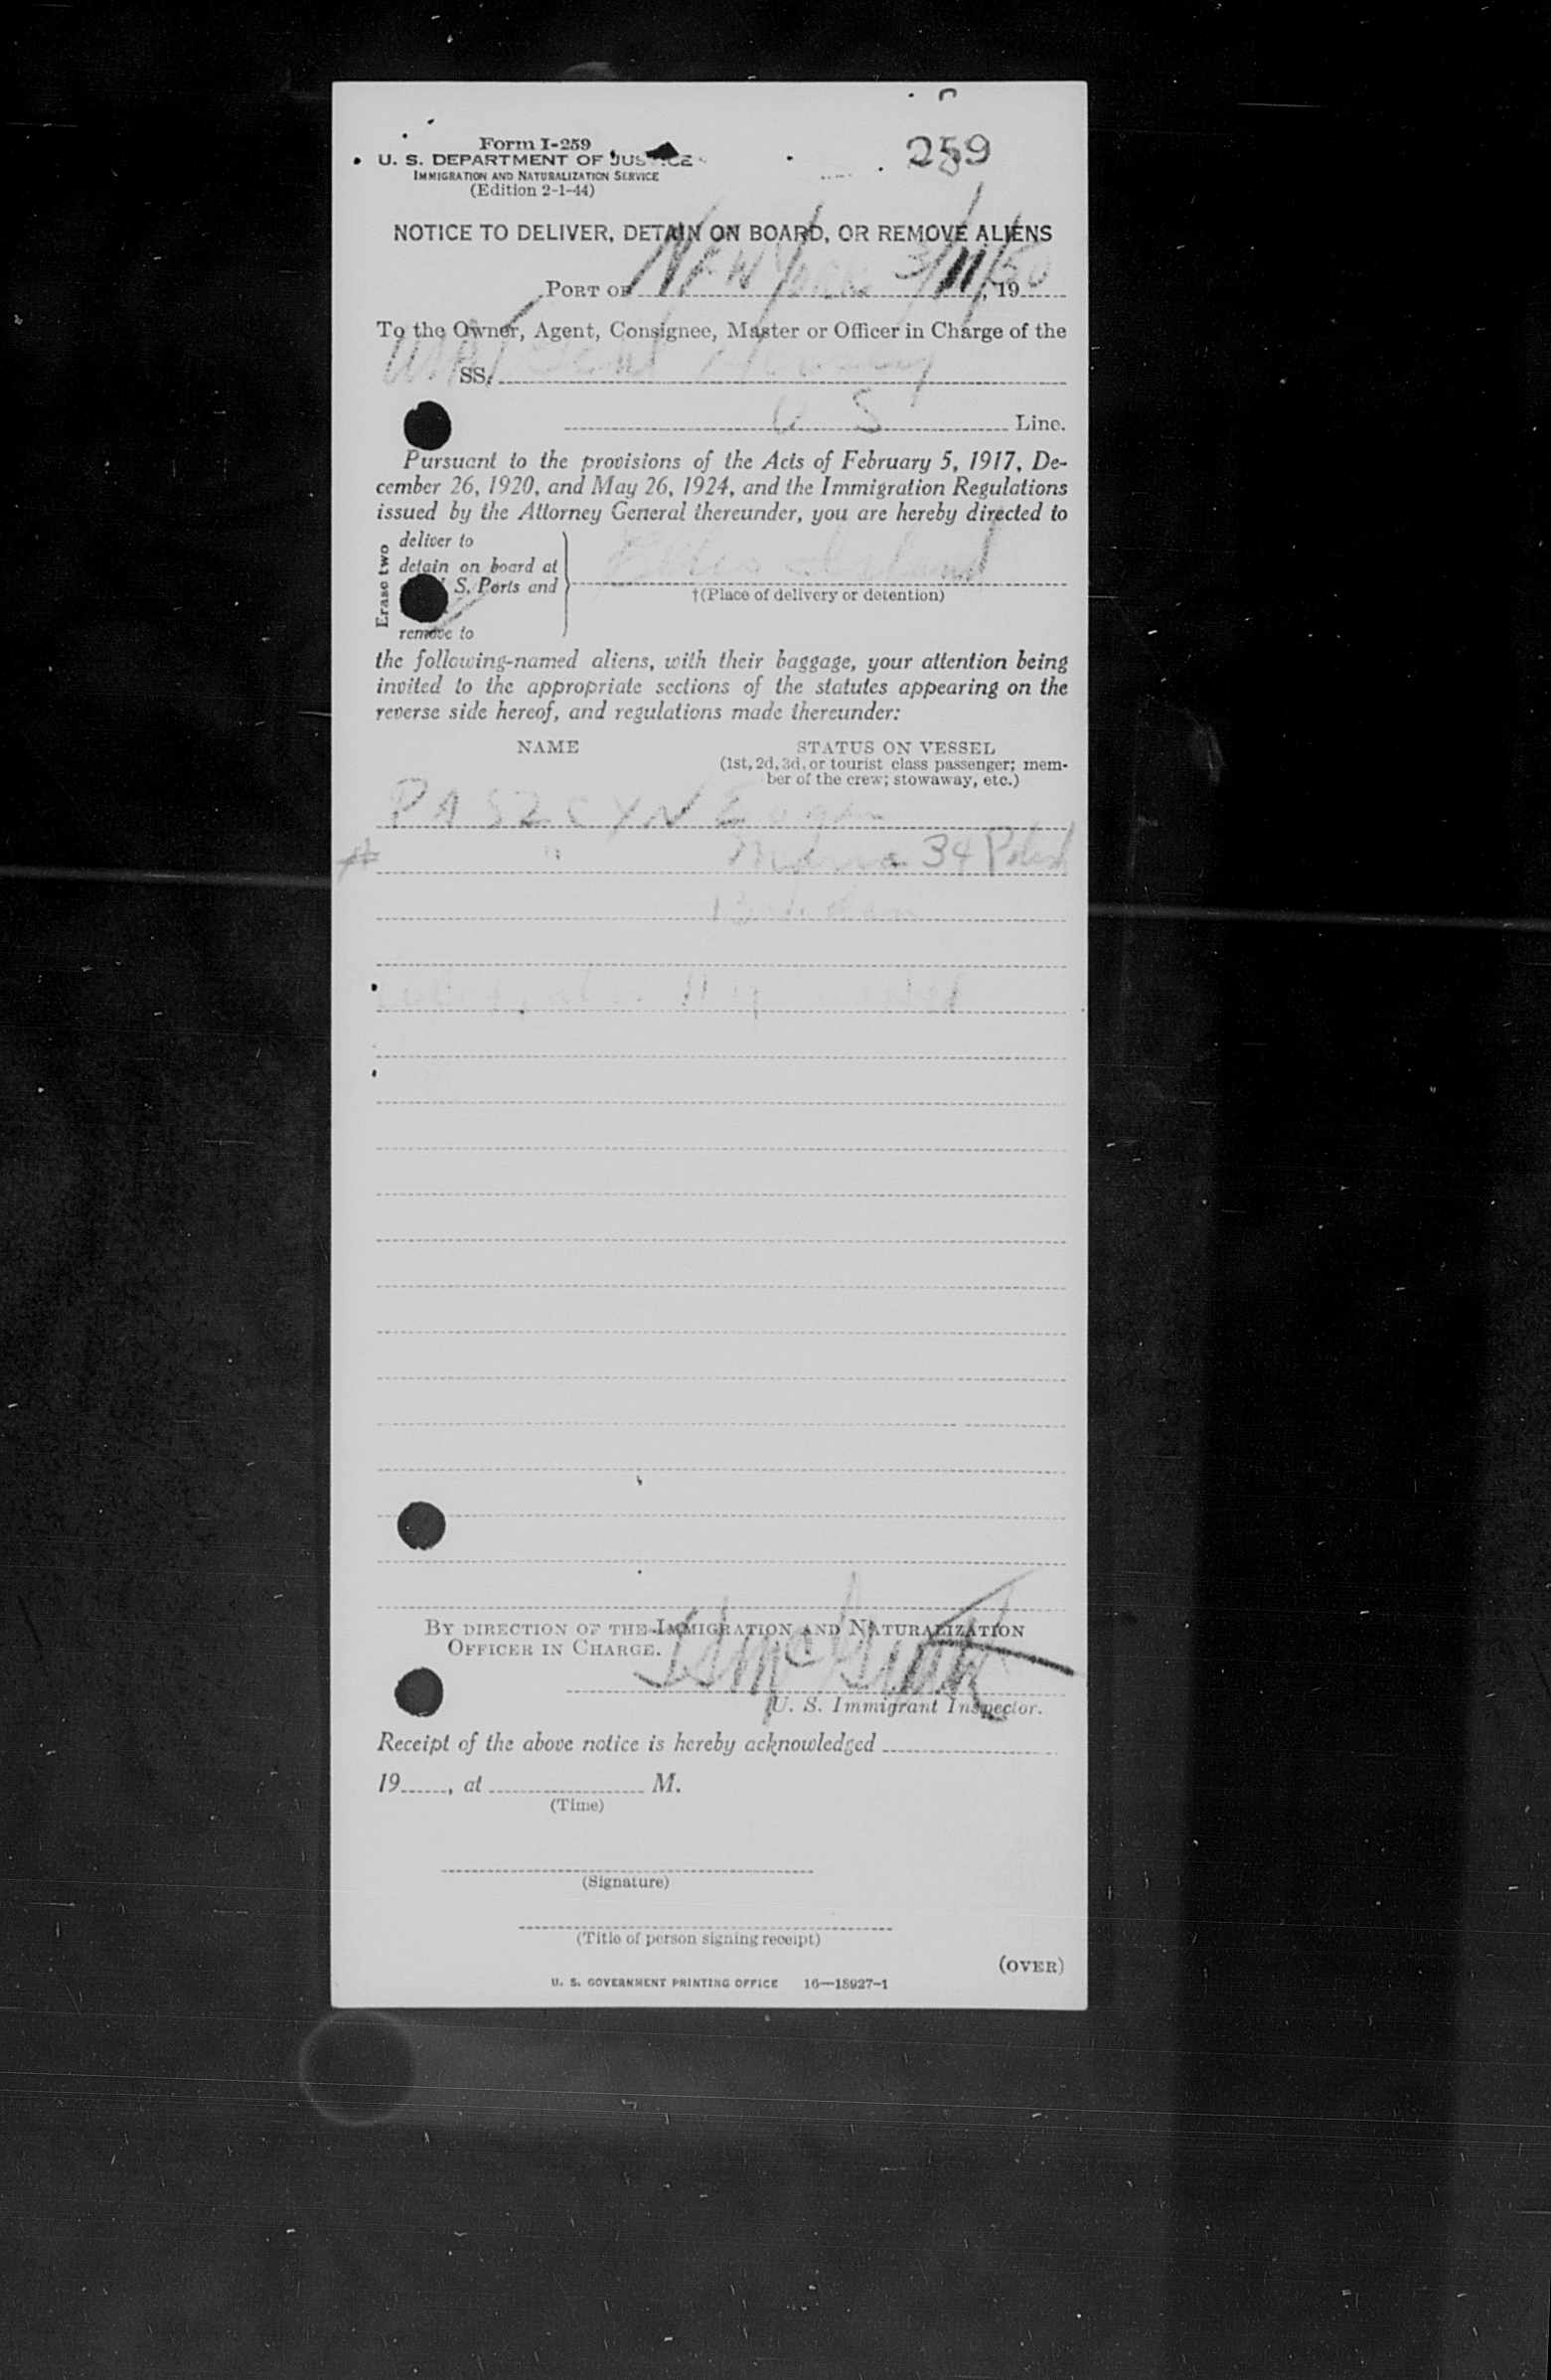 259
Form I-259
U. S. DEPARTMENT OF JUSTICE
IMMIGRATION AND NATURALIZATION SERVICE
(Edition 2-1-44)
NOTICE TO DELIVER, DETAIN ON BOARD, OR REMOVE ALIENS
PORT OF NEW York 3/11/50, 19
To the Owner, Agent, Consignee, Master or Officer in Charge of the
SS.
U S Line.
Pursuant to the provisions of the Acts of February 5, 1917, De-
cember 26, 1920, and May 26, 1924, and the Immigration Regulations
issued by the Attorney General thereunder, you are hereby directed to
Erase two
deliver to
detain on board at
S. Ports and
remove to
Ellis Island
†(Place of delivery or detention)
the following-named aliens, with their baggage, your attention being
invited to the appropriate sections of the statutes appearing on the
reverse side hereof, and regulations made thereunder:
NAME
STATUS ON VESSEL
(1st, 2d, 3d, or tourist class passenger; mem-
ber of the crew; stowaway, etc.)
PASZCYN
" 34 Polish
BY DIRECTION OF THE IMMIGRATION AND NATURALIZATION
OFFICER IN CHARGE.
U. S. Immigrant Inspector.
Receipt of the above notice is hereby acknowledged
19, at M.
(Time)
(Signature)
(Title of person signing receipt)
(OVER)
U. S. GOVERNMENT PRINTING OFFICE 16—18927-1